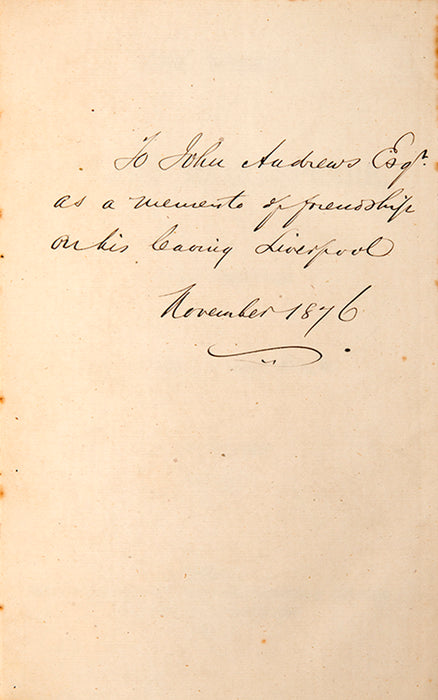 To John Andrews Esqr.
as a memento of friendship
on his leaving Liverpool
November 1876